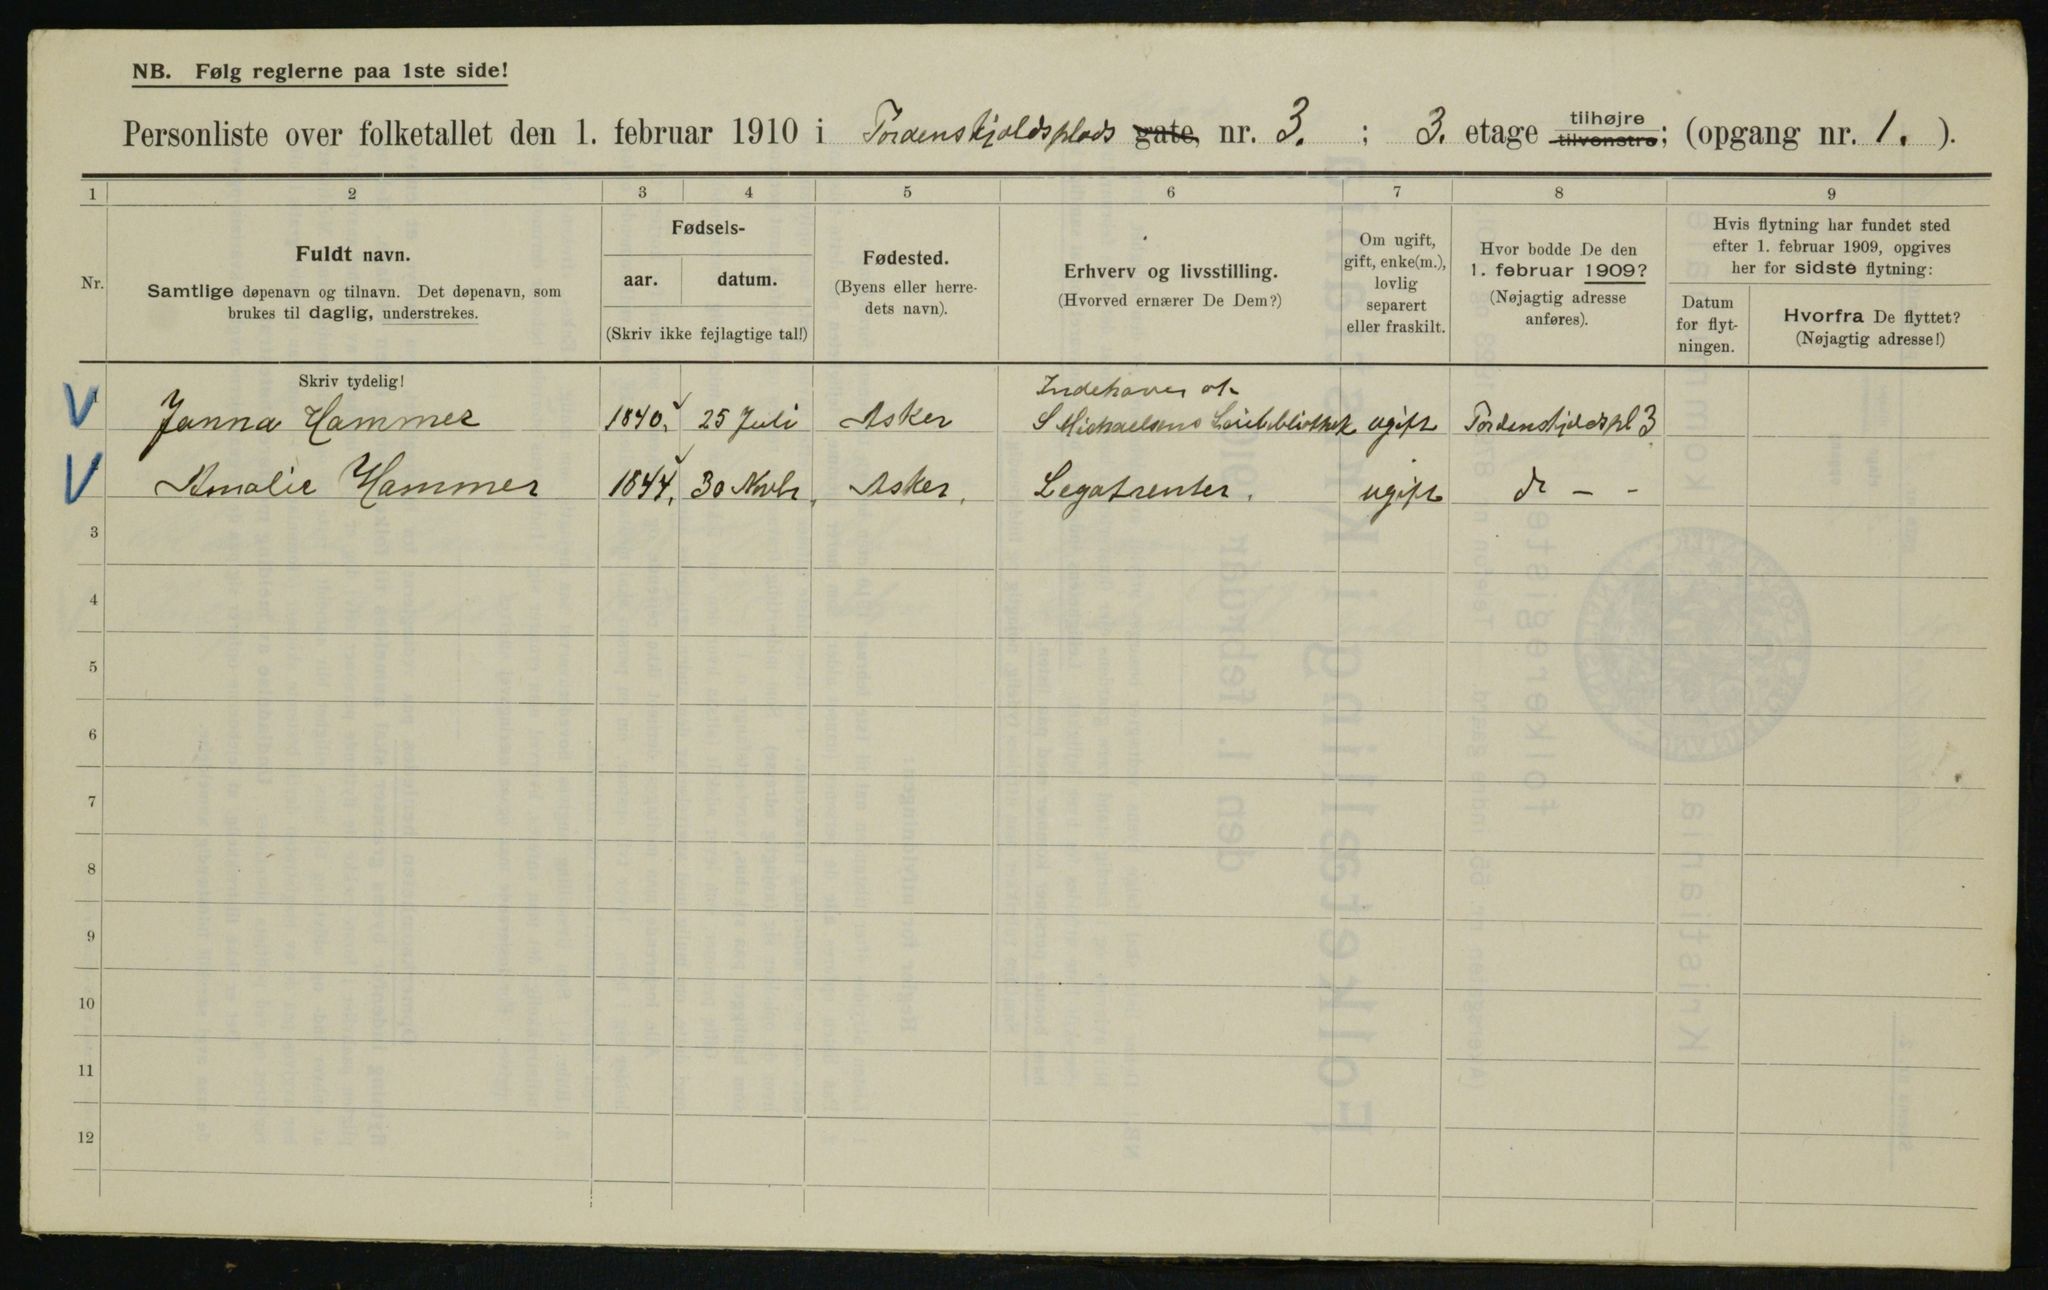 NB. Følg reglerne paa 1ste side!
Personliste over folketallet den 1. februar 1910 i Tordenskjoldsplads gate, nr. 3. ; 3. etage tilhøjre tilvenstre; (opgang nr. 1. ).
1 2 3 4 5 6 7 8 9
Nr.
Fuldt navn.
Samtlige døpenavn og tilnavn. Det døpenavn, som
brukes til daglig, understrekes.
Fødsels-
aar. datum.
(Skriv ikke fejlagtige tal!)
Fødested.
(Byens eller herre-
dets navn).
Erhverv og livsstilling.
(Hvorved ernærer De Dem?)
Om ugift,
gift, enke(m.),
lovlig
separert
eller fraskilt.
Hvor bodde De den
1. februar 1909?
(Nøjagtig adresse
anføres).
Hvis flytning har fundet sted
efter 1. februar 1909, opgives
her for sidste flytning:
Datum
for flyt-
ningen.
Hvorfra De flyttet?
(Nøjagtig adresse!)
Skriv tydelig!
V Janna Hammer 1840, 25 Juli Asker Indehaver af
S Michaelsens Leiebibliothek ugift Tordenskjoldspl 3
V Amalie Hammer 1844, 30 Novbr, Asker, Legatrenter, ugift do - -
3
4
5
6
7
8
9
10
11
12